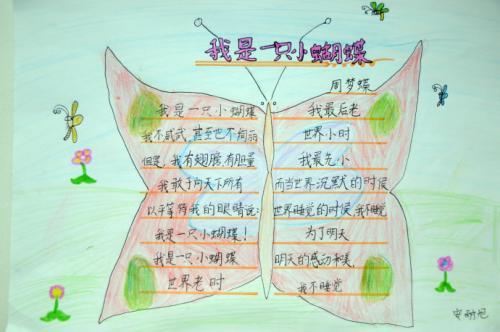 我是一只小蝴蝶
周梦蝶
我是一只小蝴蝶
我不威武，甚至也不绚丽
但是，我有翅膀，有胆量
我敢于向天下所有
以平等待我的眼睛说：
我是一只小蝴蝶！
我是一只小蝴蝶
世界老时
我最后老
世界小时
我最先小
而当世界沉默的时候
世界睡觉的时候，我不睡觉
为了明天
明天的感动和美，
我不睡觉